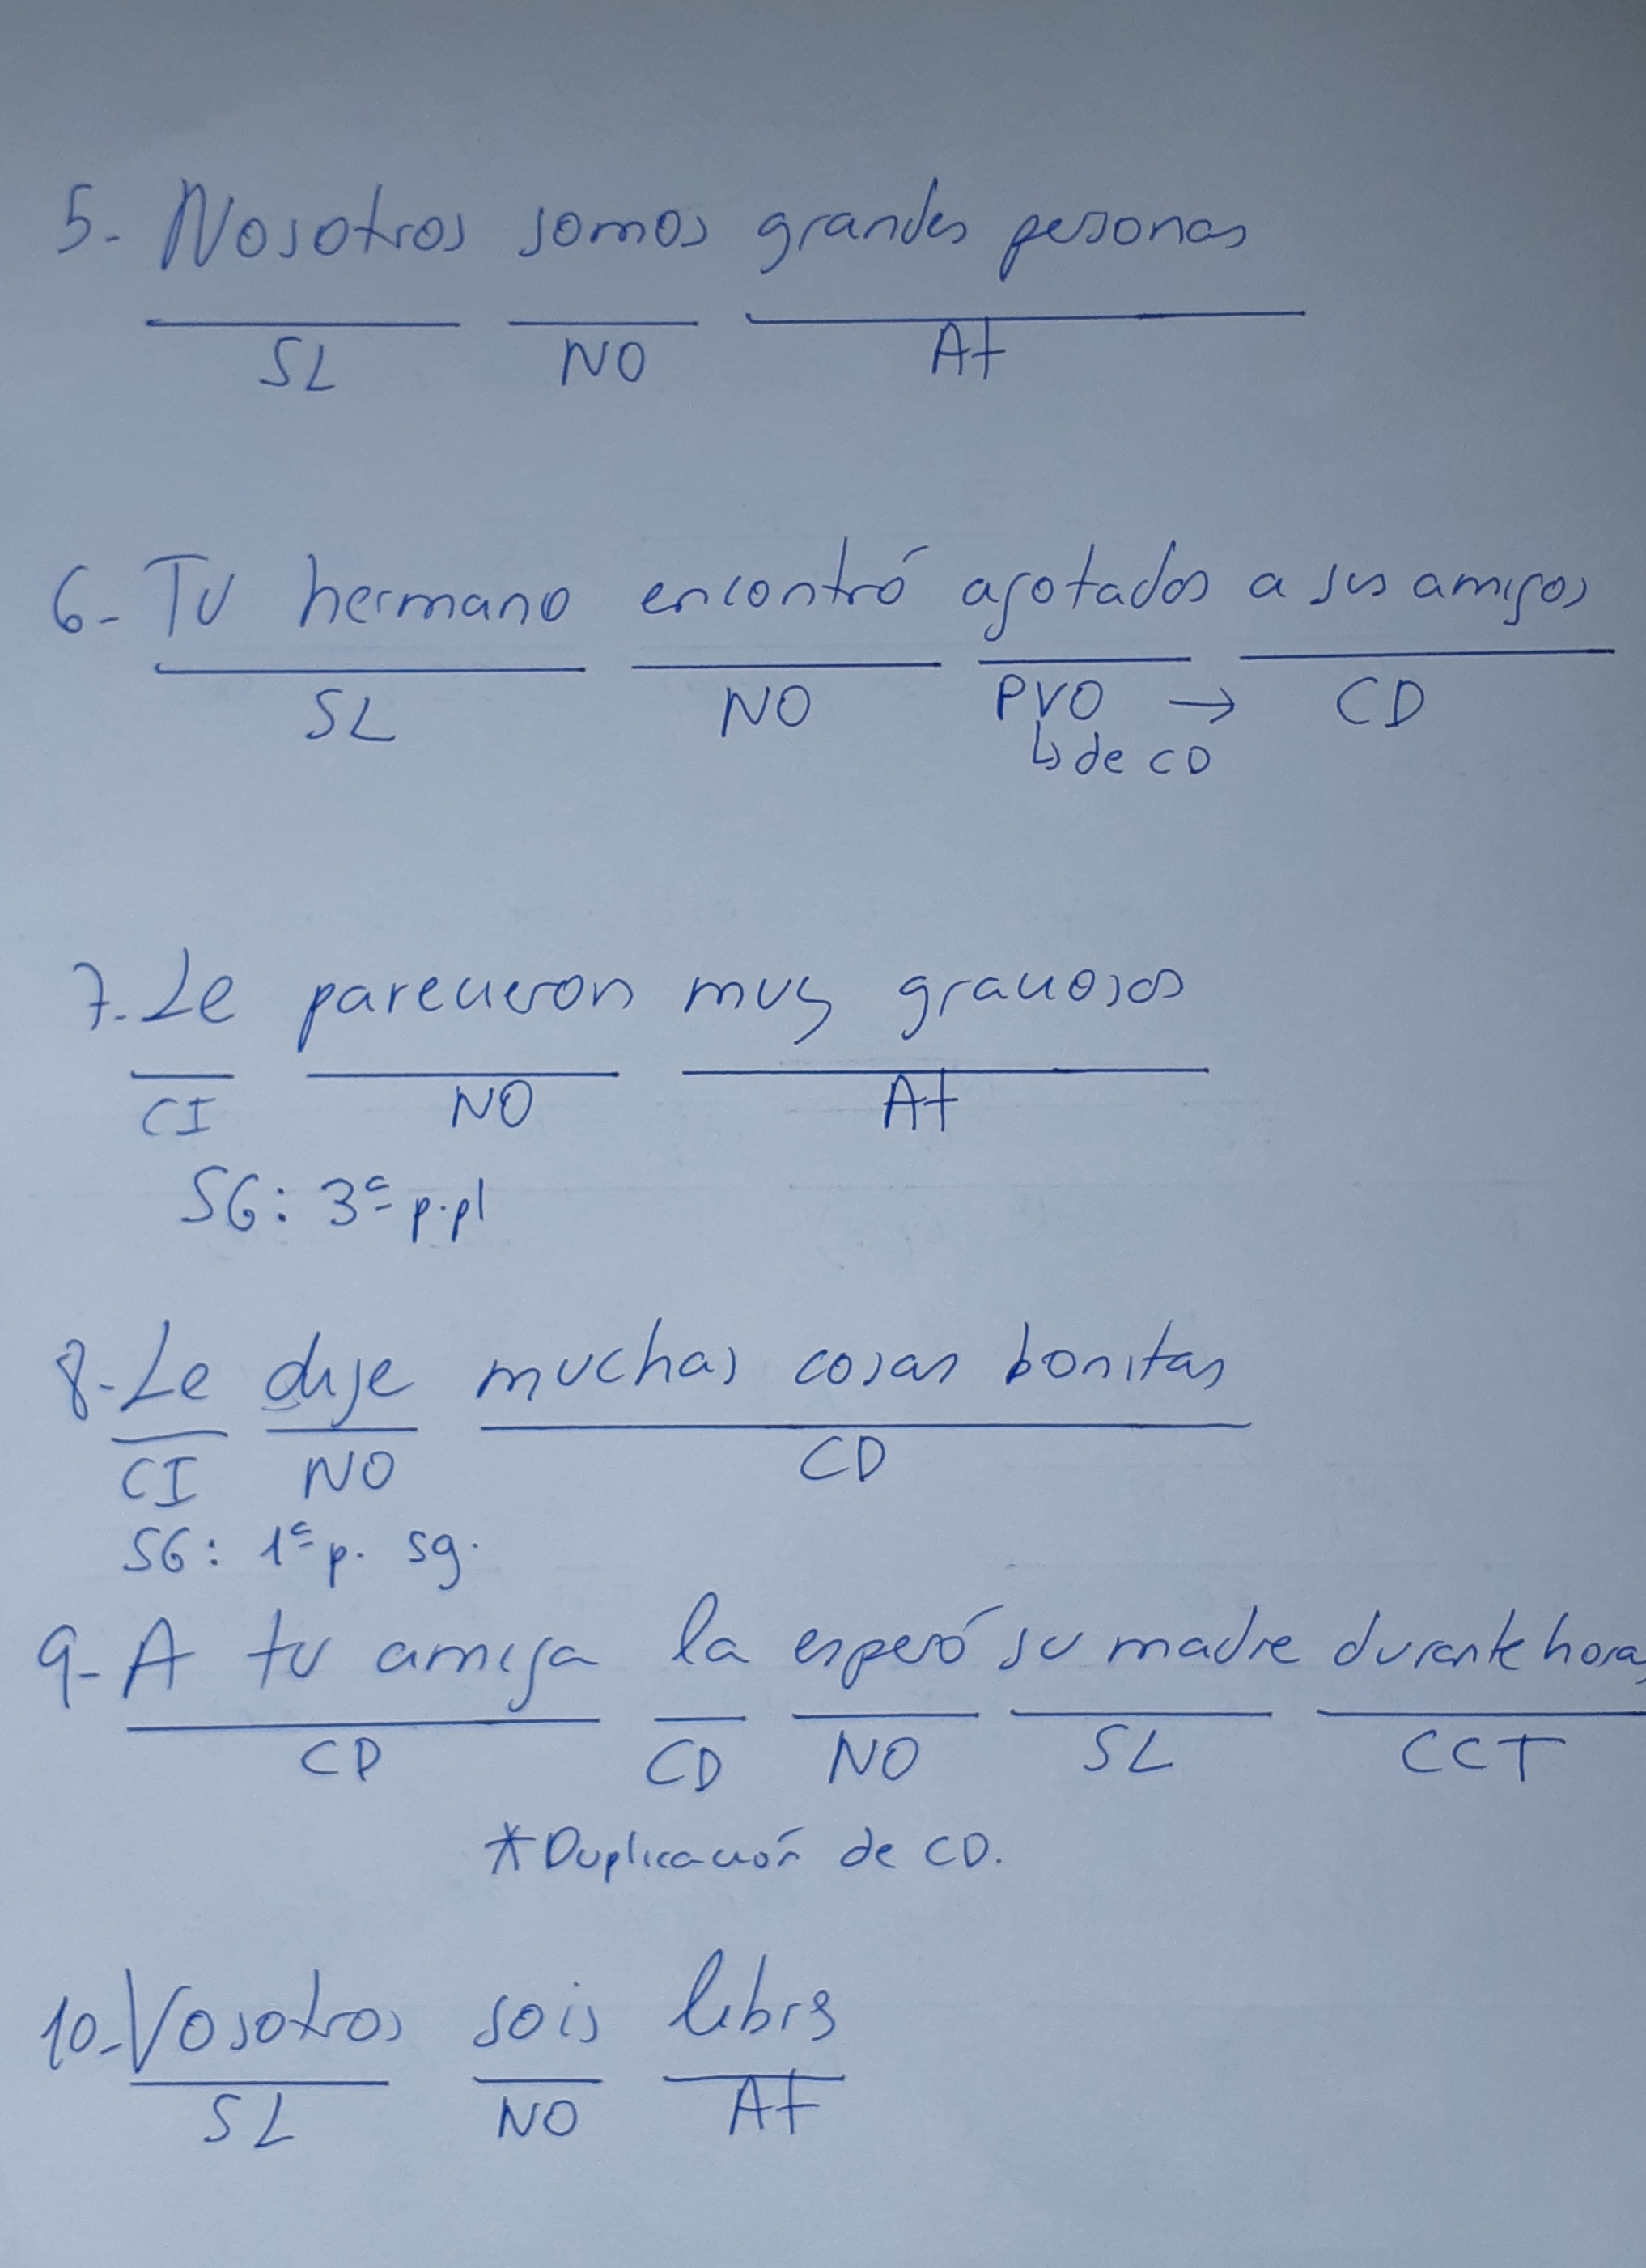 5- Nosotros somos grandes personas
SL NO At
6- Tu hermano encontró agotados a sus amigos
SL NO PVO → CD
↳ de CD
7- Le parecieron muy graciosos
CI NO At
SG: 3ª p.pl
8- Le dije muchas cosas bonitas
CI NO CD
SG: 1ª p. sg.
9- A tu amiga la esperó su madre durante horas
CD CD NO SL CCT
*Duplicación de CD.
10- Vosotros sois libres
SL NO At